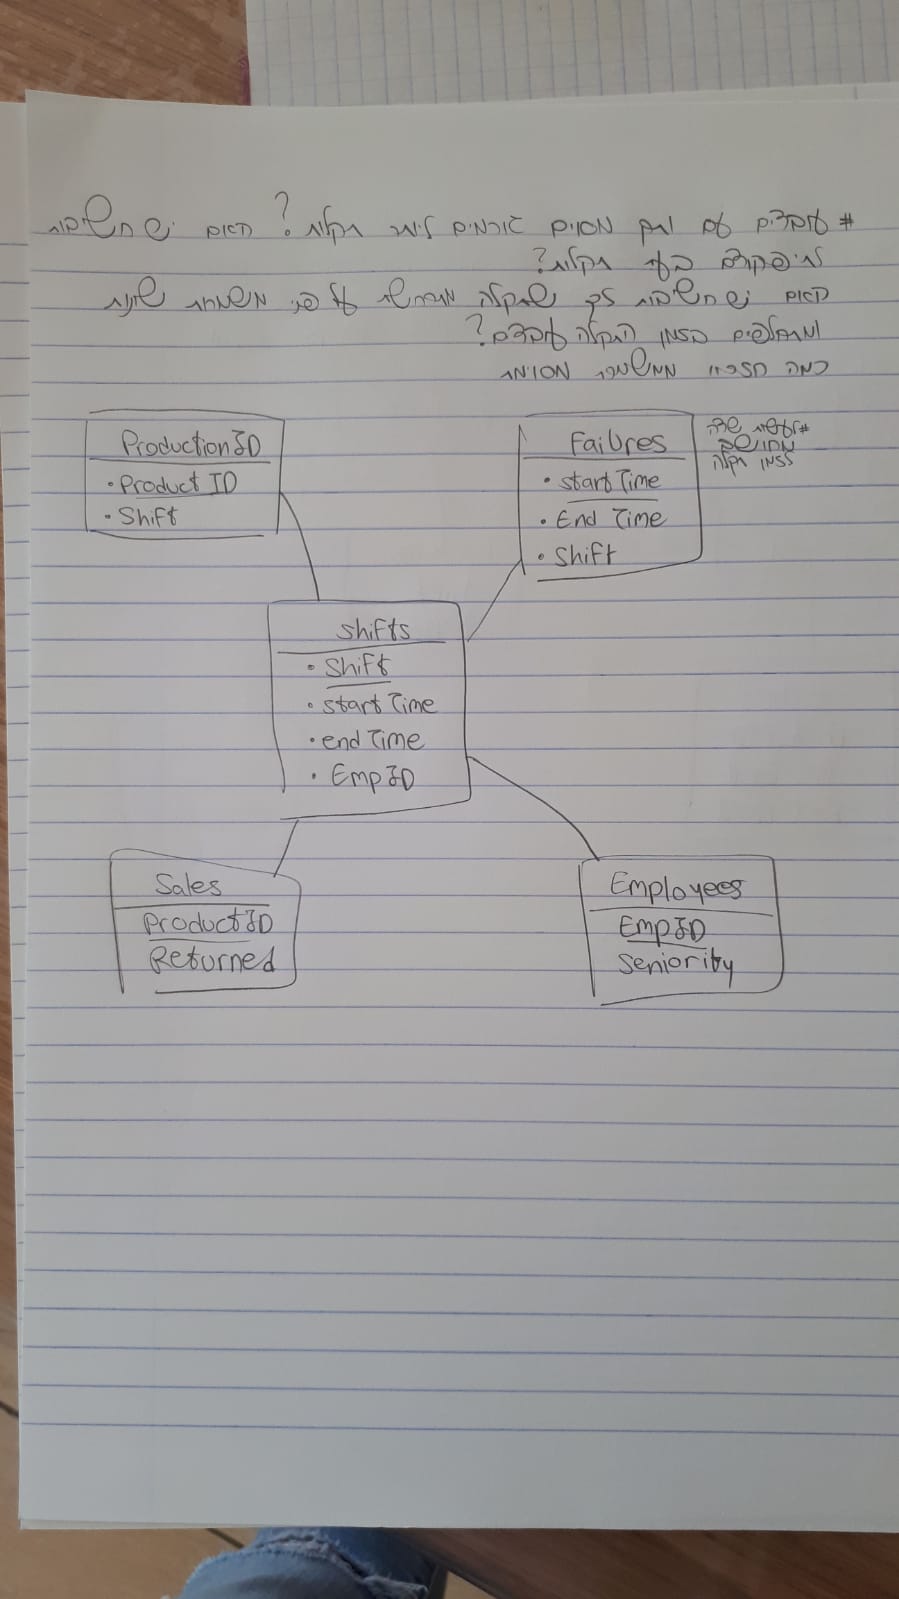 # עובדים עם ותק מסוים גורמים ליותר תקלות? האם יש חשיבות
למיקום בעת תקלות?
האם יש חשיבות לכך שהתקלה מתרחשת על פני משמרות שונות
ומתחלפים בזמן התקלה עובדים?
כמה חזרו ממשמרת מסוימת
ProductionID
• Product ID
• Shift
Failures
• start Time
• End Time
• Shift
מחושב
לזמן תקלה
Shifts
• Shift
• start Time
• end Time
• EmpID
Sales
ProductID
Returned
Employees
EmpID
Seniority